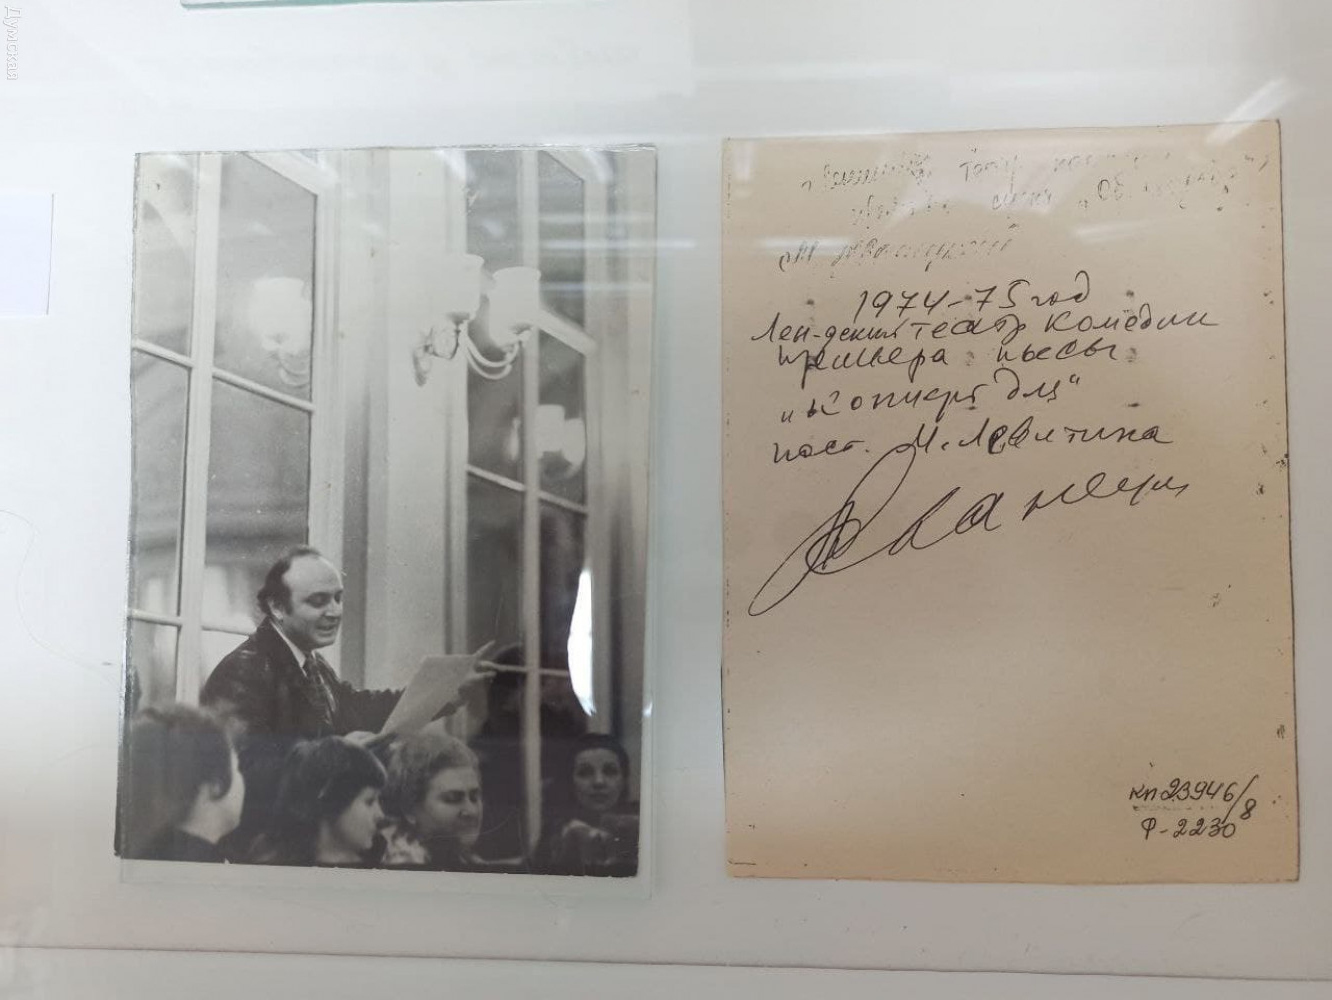 Думская
театр
М. Жванецкий
1974-75 год
Лен-дский театр Комедии
премьера пьесы
„Концерт для"
пост. М. Левитина
Жванецкий
КП 23946/8
Ф-2230